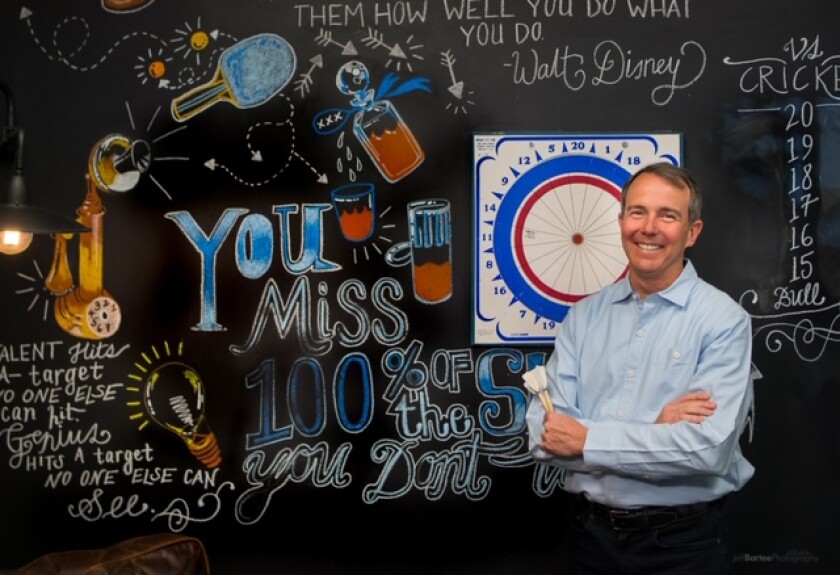 THEM HOW WELL YOU DO WHAT
YOU DO.
-Walt Disney
VS
CRICKE
20
19
18
17
16
15
Bull
XXX
12 5 20 1 18
9
14
11
8
16
7
19
You
Miss
100% OF
the S
you Don't
TALENT Hits
A target
NO ONE ELSE
can hit.
Genius
Hits A target
NO ONE ELSE CAN
See.
JeffBarteePhotography